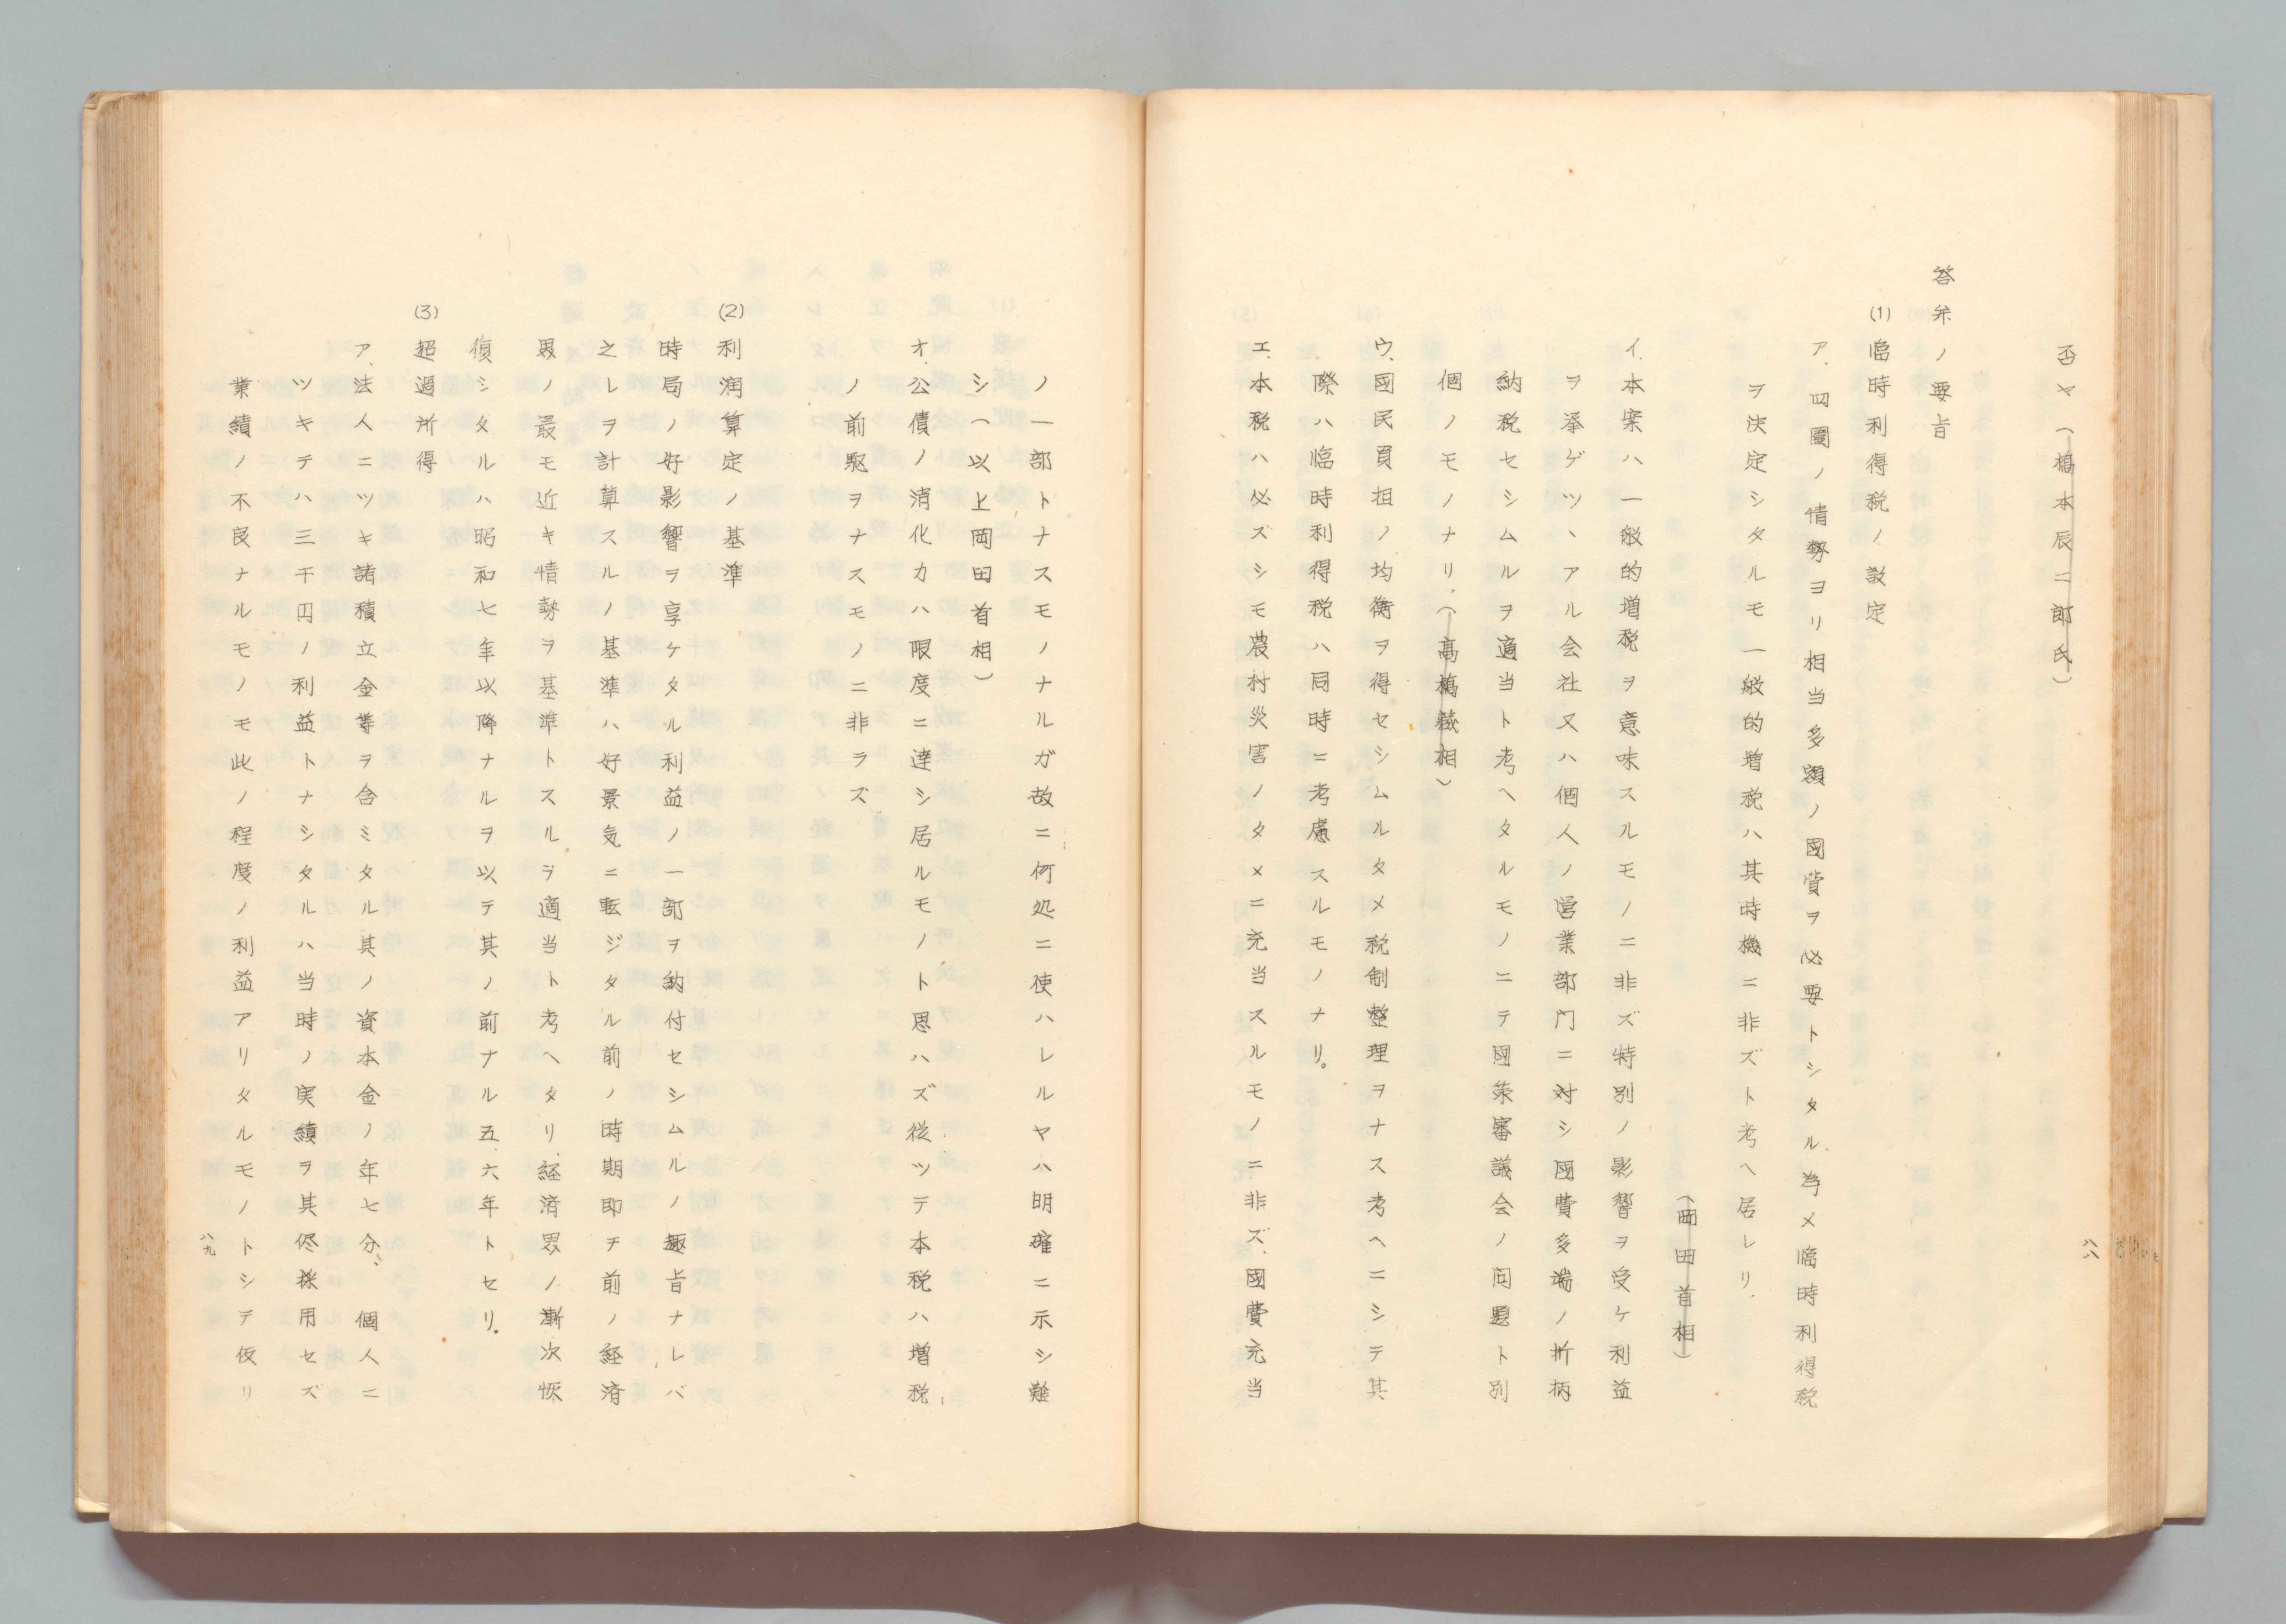 否ヤ(橋本辰二郎氏)
答弁ノ要旨
(1) 臨時利得税ノ設定
ア.四圍ノ情勢ヨリ相当多額ノ國費ヲ必要トシタル為メ臨時利得税
ヲ決定シタルモ一般的増税ハ其時機ニ非ズト考ヘ居レリ.
(岡田首相)
イ.本案ハ一般的増税ヲ意味スルモノニ非ズ特別ノ影響ヲ受ケ利益
ヲ挙ゲツヽアル会社又ハ個人ノ営業部門ニ対シ國費多端ノ折柄
納税セシムルヲ適当ト考ヘタルモノニテ國策審議会ノ問題ト別
個ノモノナリ.(高橋蔵相)
ウ.國民負担ノ均衡ヲ得セシムルタメ税制整理ヲナス考ヘニシテ其
際ハ臨時利得税ハ同時ニ考慮スルモノナリ.
エ.本税ハ必ズシモ農村災害ノタメニ充当スルモノニ非ズ.國費充当
八八
ノ一部トナスモノナルガ故ニ何処ニ使ハレルヤハ明確ニ示シ難
シ(以上岡田首相)
オ.公債ノ消化力ハ限度ニ達シ居ルモノト思ハズ従ツテ本税ハ増税
ノ前駆ヲナスモノニ非ラズ
(2) 利潤算定ノ基準
時局ノ好影響ヲ享ケタル利益ノ一部ヲ納付セシムルノ趣旨ナレバ
之レヲ計算スルノ基準ハ好景気ニ転ジタル前ノ時期即チ前ノ経済
界ノ最モ近キ情勢ヲ基準トスルヲ適当ト考ヘタリ.経済界ノ漸次恢
復シタルハ昭和七年以降ナルヲ以テ其ノ前ナル五.六年トセリ.
(3) 超過所得
ア.法人ニツキ諸積立金等ヲ含ミタル其ノ資本金ノ年七分、個人ニ
ツキテハ三千円ノ利益トナシタルハ当時ノ実績ヲ其侭採用セズ
業績ノ不良ナルモノモ此ノ程度ノ利益アリタルモノトシテ仮リ
八九